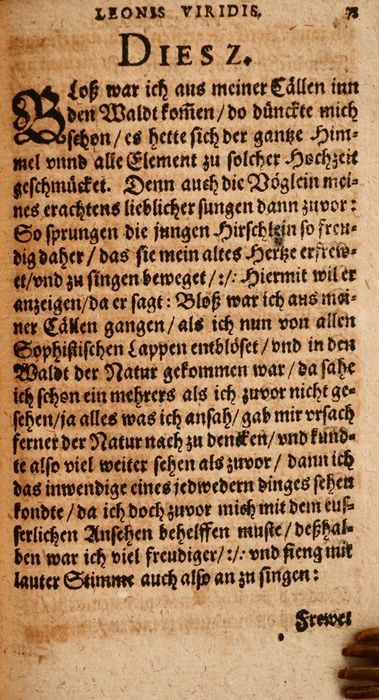 LEONIS VIRIDIS. 73
DIES 2.
Bloß war ich aus meiner Cällen inn
den Waldt kom̃en / do dünckte mich
schon / es hette sich der gantze Him-
mel vnnd alle Element zu solcher Hochzeit
geschmücket. Denn auch die Vöglein mei-
nes erachtens lieblicher sungen dann zuvor:
So sprungen die jungen Hirschlein so freu-
dig daher / das sie mein altes Hertze erfrew-
et / vnd zu singen beweget /:/: Hiermit wil er
anzeigen / da er sagt: Bloß war ich aus mei-
ner Cällen gangen / als ich nun von allen
Sophistischen Lappen entblöset / vnd in den
Waldt der Natur gekommen war / da sahe
ich schon ein mehrers als ich zuvor nicht ge-
sehen / ja alles was ich ansah / gab mir vrsach
ferner der Natur nach zu dencken / vnd kund-
te also viel weiter sehen als zuvor / dann ich
das inwendige eines jedwedern dinges sehen
kondte / da ich doch zuvor mich mit dem eus-
serlichen Ansehen behelffen muste / deßhal-
ben war ich viel freudiger /:/: vnd fieng mit
lauter Stimme auch also an zu singen:
Frewet